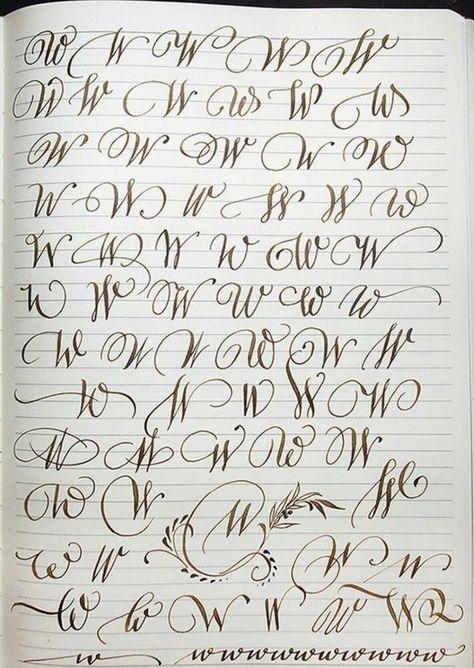 W W W W W W
W W W W W W
W W W W W
W W W W W W
W W W W W W
W W W W W W
W W W W W W
W W W W W
W W W W W
W W W W
W W W W
W W W W W W
w wwwwwwwwww